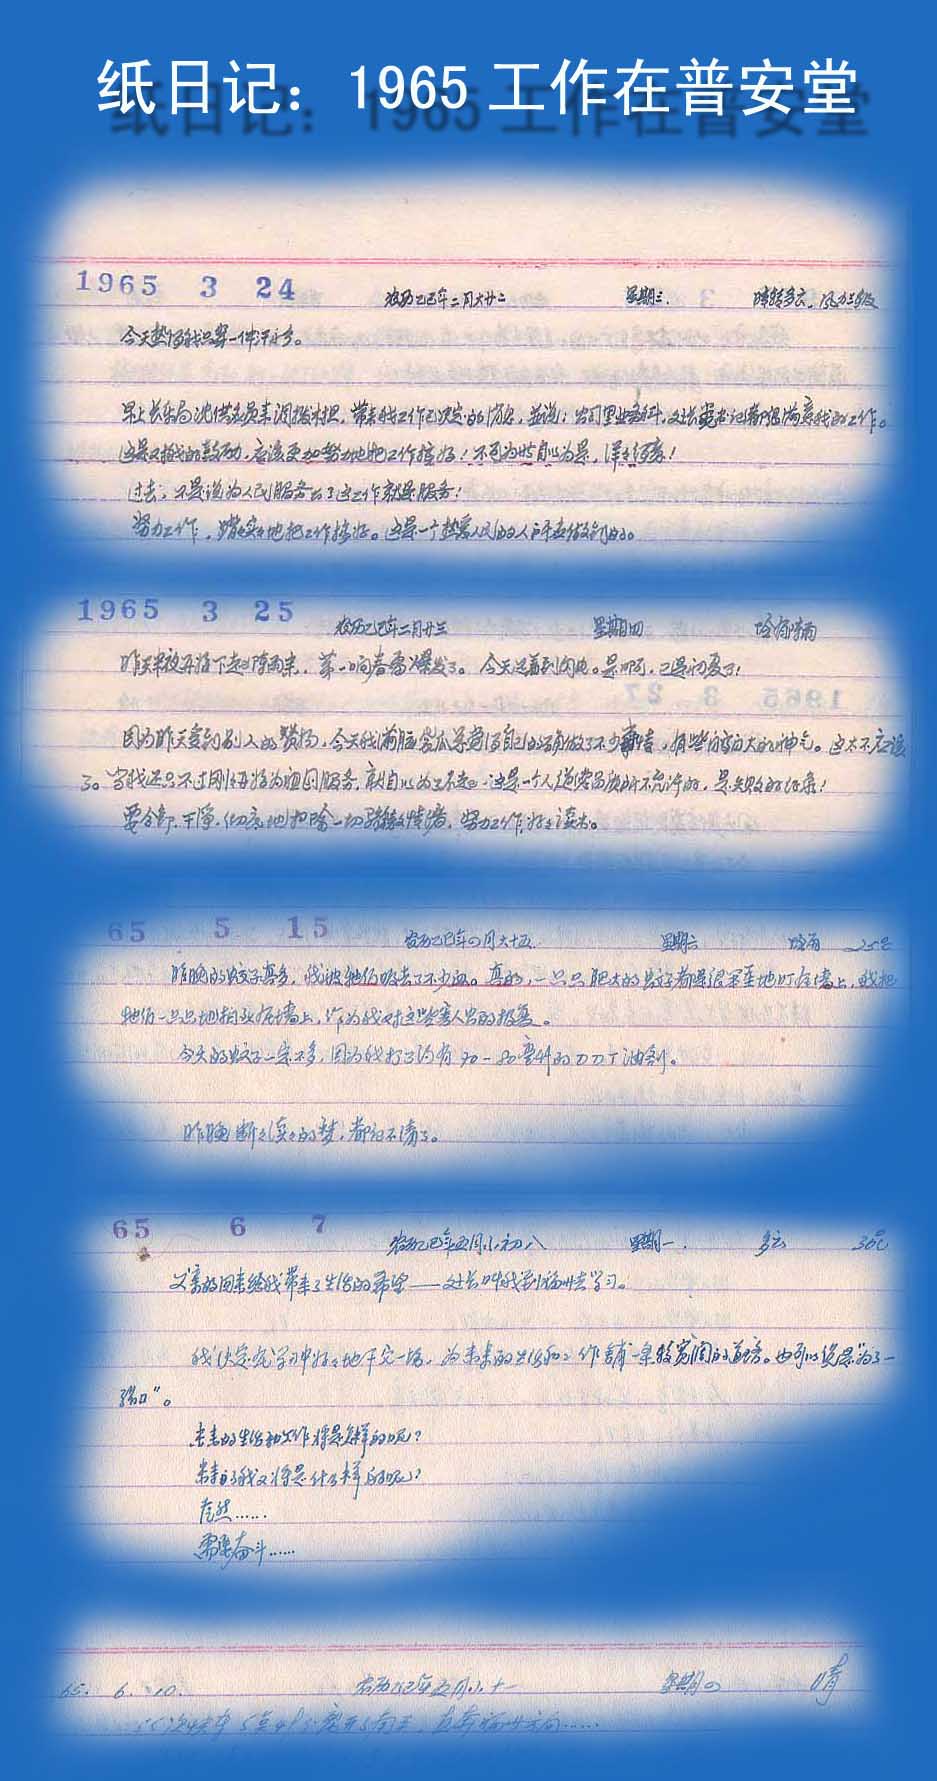 纸日记：1965 工作在普安堂
1965 3 24 农历乙巳年二月大廿二 星期三. 晴转多云. 风力三级
今天
早上 带来我工作已决定的 並说：公司里业务科、 都很满意我的工作。
这是对我的鼓励，应该更加努力地把工作搞好！不可为此自以为是，洋洋得意！
过去，不是说为人民服务么？这工作就是服务！
努力工作，踏踏实实地把工作搞好。这是一个热爱人民的人
1965 3 25 农历乙巳年二月廿三 星期四
昨天半夜 下起了阵雨来，第一响春雷爆发了。今天还看到闪电。是啊，已是初夏了！
因为昨天受到别人的赞扬，今天我 觉得自己的确做了不少事情，有些 的神气。这太不应该
了。当我还只不过刚刚开始为祖国服务，就自以为了不起，这是一个人 所不允许的，是失败的征象！
要全部、干净、彻底地扫除一切骄傲情绪，努力工作，好好读书。
65 5 15 农历乙巳年四月大十五 星期六 25℃
昨晚的蚊子真多，我被牠们吸去了不少血。真的，一只只肥大的蚊子都是很笨重地叮在墙上，我把
牠们一只只地拍死在墙上，作为我对这些害人虫的报复。
今天的蚊子一定不多，因为我打了约有 油剂。
昨晚断断续续的梦，都记不清了。
65 6 7 农历乙巳年五月小初八 星期一. 多云 30℃
父亲的回来给我带来了生活的希望—— 叫我到福州去学习。
我决定在学习中好好地干它一场，为未来的生活和工作铺一条较宽阔的道路。也可以说是“为了一
张口”。
未来的生活和工作将是怎样的呢？
未来的我又将是什么样的呢？
茫然……
需要奋斗……
65. 6. 10. 农历乙巳年五月小十一 星期四 晴
离开了南平，直奔福州方向……